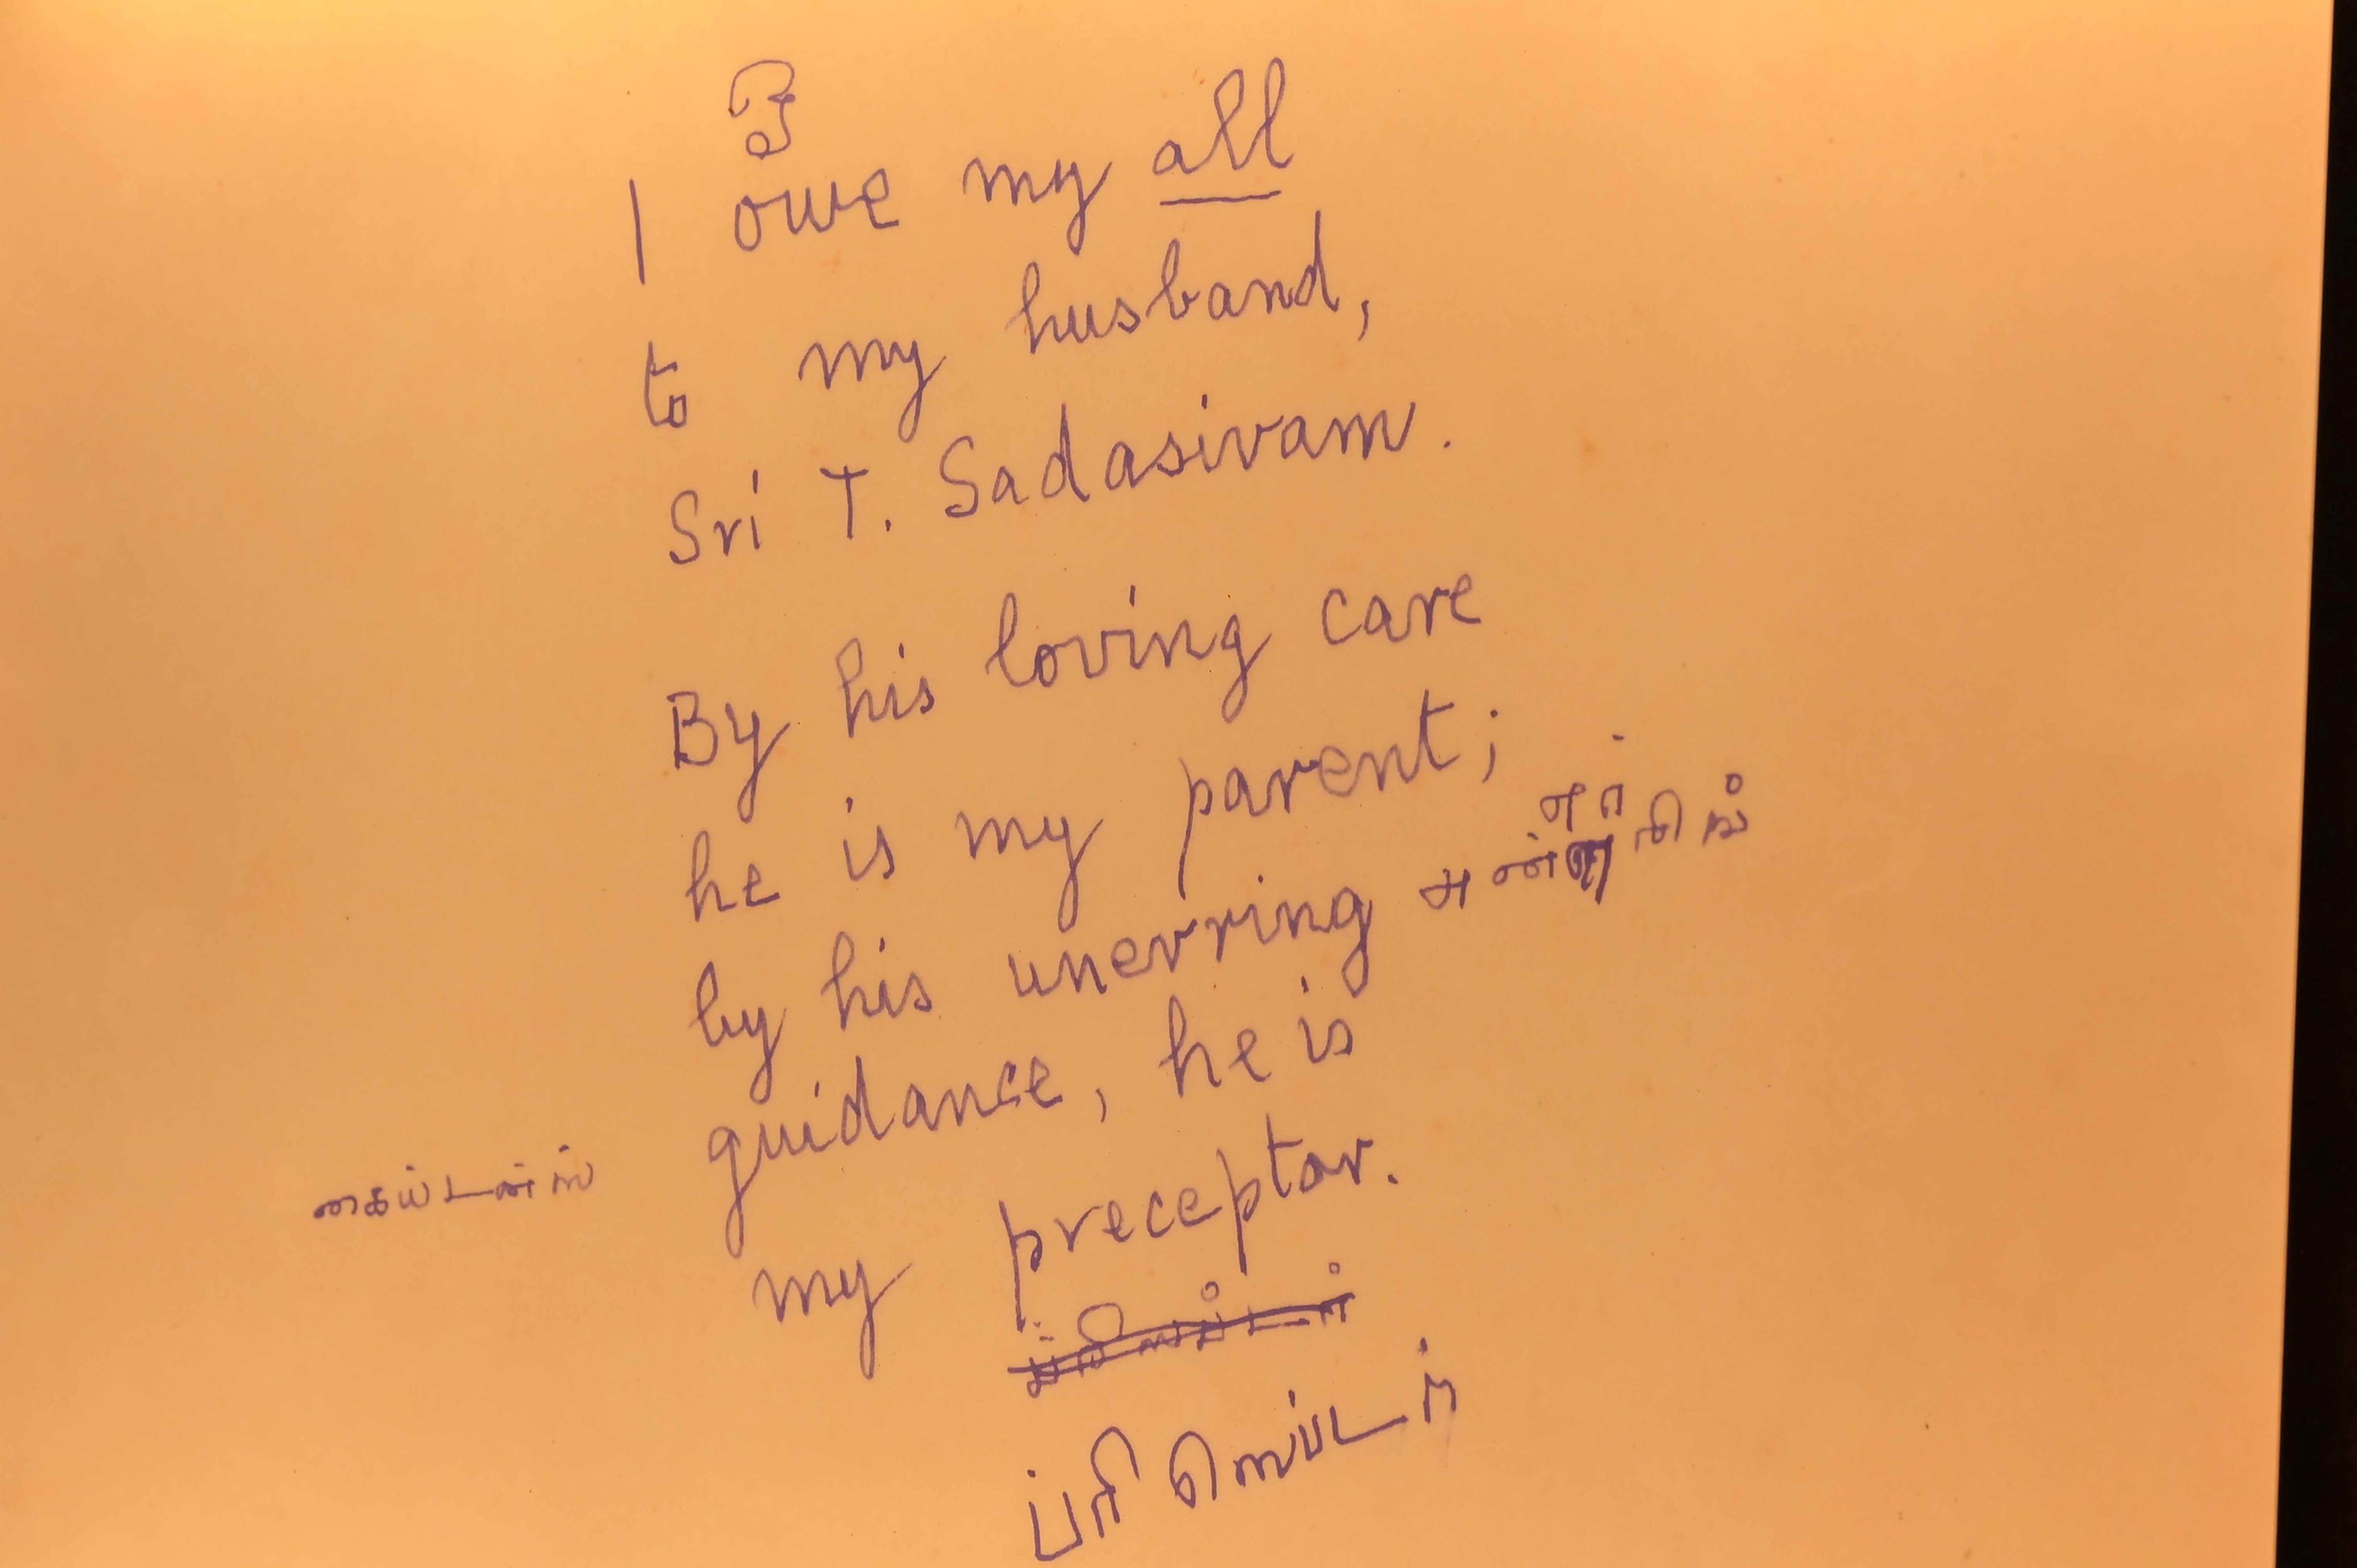 ஓ
I owe my all
to my husband,
Sri T. Sadasivam.
By his loving care
he is my parent;
by his unerring
guidance, he is
கைய்டன்ஸ்
my preceptor.
ப்ரிஸெப்டர்